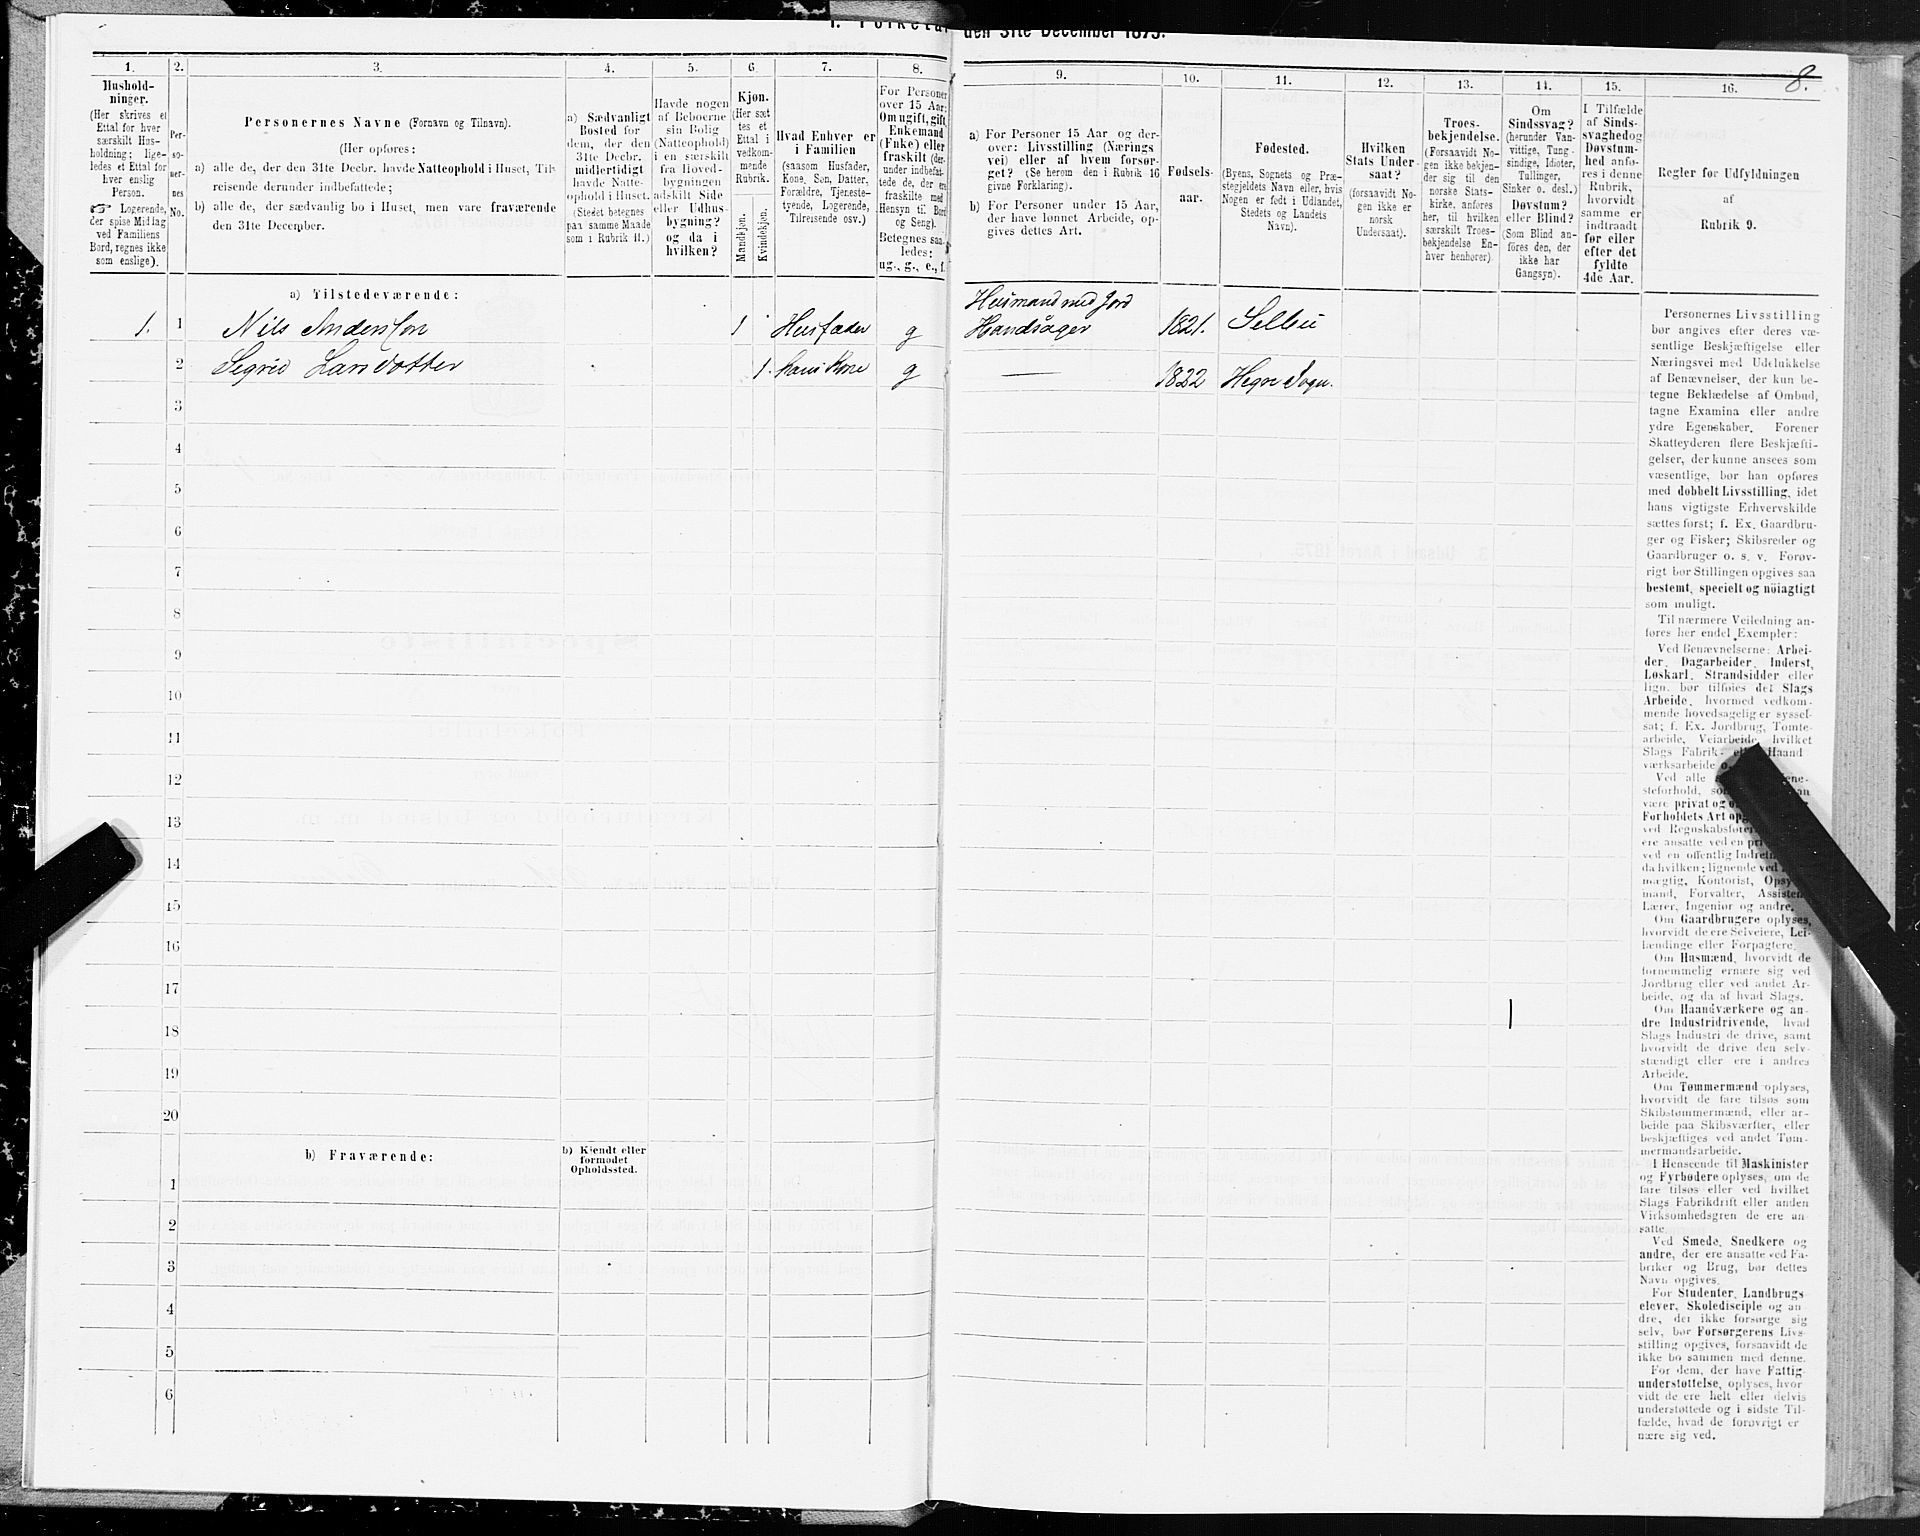 1. Folketæl den 31te December 1875.
8.
1.
Hushold-
ninger.
(Her skrives et
Ettal for hver
særskilt Hus-
holdning; lige-
ledes et Ettal for
hver enslig
Person.
☞ Logerende,
der spise Middag
ved Familiens
Bord, regnes ikke
som enslige).
2.
Per-
so-
ner-
nes
No.
3.
Personernes Navne (Fornavn og Tilnavn).
(Her opføres:
a) alle de, der den 31te Decbr. havde Natteophold i Huset, Til-
reisende derunder indbefattede;
b) alle de, der sædvanlig bo i Huset, men vare fraværende
den 31te December.
4.
a) Sædvanligt
Bosted for
dem, der den
31te Decbr.
midlertidigt
havde Natte-
ophold i Huset.
(Stedet betegnes
paa samme Maade
som i Rubrik 11.)
5.
Havde nogen
af Beboerne
sin Bolig
(Natteophold)
i en særskilt
fra Hoved-
bygningen
adskilt Side
eller Udhus-
bygning?
og da i
hvilken?
6.
Kjøn.
(Her sæt
tes et
Ettal i
vedkom-
mende
Rubrik.
Mandkjøn.
Kvindekjøn.
7.
Hvad Enhver er
i Familien
(saasom Husfader,
Kone, Søn, Datter,
Forældre, Tjeneste-
tyende, Logerende,
Tilreisende osv.)
8.
For Personer
over 15 Aar:
Om ugift, gift,
Enkemand
(Enke) eller
fraskilt (der-
under indbefat-
tede de, der ere
fraskilte med
Hensyn til Bord
og Seng).
Betegnes saa-
ledes:
ug., g., e., f.
9.
a) For Personer 15 Aar og der-
over: Livsstilling (Nærings
vei) eller af hvem forsør-
get? (Se herom den i Rubrik 16
givne Forklaring).
b) For Personer under 15 Aar,
der have lønnet Arbeide, op-
gives dettes Art.
10.
Fødsels-
aar.
11.
Fødested.
(Byens, Sognets og Præ-
stegjeldets Navn eller, hvis
Nogen er født i Udlandet,
Stedets og Landets
Navn).
12.
Hvilken
Stats Under-
saat?
(forsaavidt No-
gen ikke er
norsk
Undersaat).
13.
Troes-
bekjendelse.
(Forsaavidt No-
gen ikke bekjen-
der sig til den
norske Stats-
kirke, anføres
her, til hvilken
særskilt Troes-
bekjendelse En-
hver henhører)
14.
Om
Sindssvag?
(herunder Van-
vittige, Tung-
sindige, Idioter,
Tullinger,
Sinker o. desl.)
Døvstum?
eller Blind?
(Som Blind an-
føres den, der
ikke har
Gangsyn).
15.
I Tilfælde
af Sinds-
svaghed og
Døvstum-
hed anfø-
res i denne
Rubrik,
hvorvidt
samme er
indtraadt
før eller
efter det
fyldte
4de Aar.
16.
Regler for Udfyldningen
af
Rubrik 9.
a) Tilstedeværende:
1. 1 Nils Andersson 1 Husfader g Husmand med Jord
Handsager 1821. Selbu
2 Sigrid Larsdatter 1. hans Kone g — 1822 Hegre Sogn.
3
4
5
6
7
8
9
10
11
12
13
14
15
16
17
18
19
20
b) Fraværende:
b) Kjendt eller
formodet
Opholdssted.
1
2
3
4
5
6
Personernes Livsstilling
bør angives efter deres væ-
sentlige Beskjæftigelse eller
Næringsvei med Udelukkelse
af Benævnelser, der kun be-
tegne Beklædelse af Ombud,
tagne Examina eller andre
ydre Egenskaber. Forener
Skatteyderen flere Beskjæfti-
gelser, der kunne ansees som
væsentlige, bør han opføres
med dobbelt Livsstilling, idet
hans vigtigste Erhvervskilde
sættes først; f. Ex. Gaardbru-
ger og Fisker; Skibsreder og
Gaardbruger o. s. v. Forøv-
rigt bør Stillingen opgives saa
bestemt, specielt og nöiagtigt
som muligt.
Til nærmere Veiledning an-
føres her endel Exempler:
Ved Benævnelserne: Arbei-
der, Dagarbeider, Inderst,
Løskarl, Strandsidder eller
lign. bør tilføies det Slags
Arbeide, hvormed vedkom-
mende hovedsagelig er syssel-
sat; f. Ex. Jordbrug, Tomte-
arbeide, Veiarbeide, hvilket
Slags Fabrik- eller Haand
værksarbeide o.
Ved alle
steforhold,
være privat og
Forholdets Art
ved Regnskabsfører
ere ansatte ved en
ved en offentlig
da hvilken; lignende ved
mægtig, Kontorist,
mand, Forvalter,
Lærer, Ingeniør og andre.
Om Gaardbrugere oplyses,
hvorvidt de ere Selveiere, Lei-
lændinge eller Forpagtere.
Om Husmænd, hvorvidt de
fornemmelig ernære sig ved
Jordbrug eller ved andet Ar-
beide, og da af hvad Slags.
Om Haandværkere og an-
dre Industridrivende, hvad
Slags Industri de drive, samt
hvorvidt de drive den selv-
stændigt eller ere i andres
Arbeide.
Om Tømmermænd oplyses,
hvorvidt de fare tilsøs som
Skibstømmermænd, eller ar-
beide paa Skibsværfter, eller
beskjæftiges ved andet Tøm-
mermandsarbeide.
I Henseende til Maskinister
og Fyrbødere oplyses, om de
fare tilsøs eller ved hvilket
Slags Fabrikdrift eller anden
Virksomhedsgren de ere an-
satte.
Ved Smede, Snedkere og
andre, der ere ansatte ved Fa-
briker og Brug, bør dettes
Navn opgives.
For Studenter, Landbrugs
elever, Skoledisciple og an-
dre, der ikke forsørge sig
selv, bør Forsørgerens Livs-
stilling opgives, forsaavidt de
ikke bo sammen med denne.
For dem, der have Fattig
understøttelse, oplyses, hvor
vidt de ere helt eller delvis
understøttede og i sidste Til-
fælde, hvad de forøvrigt er
nære sig ved.